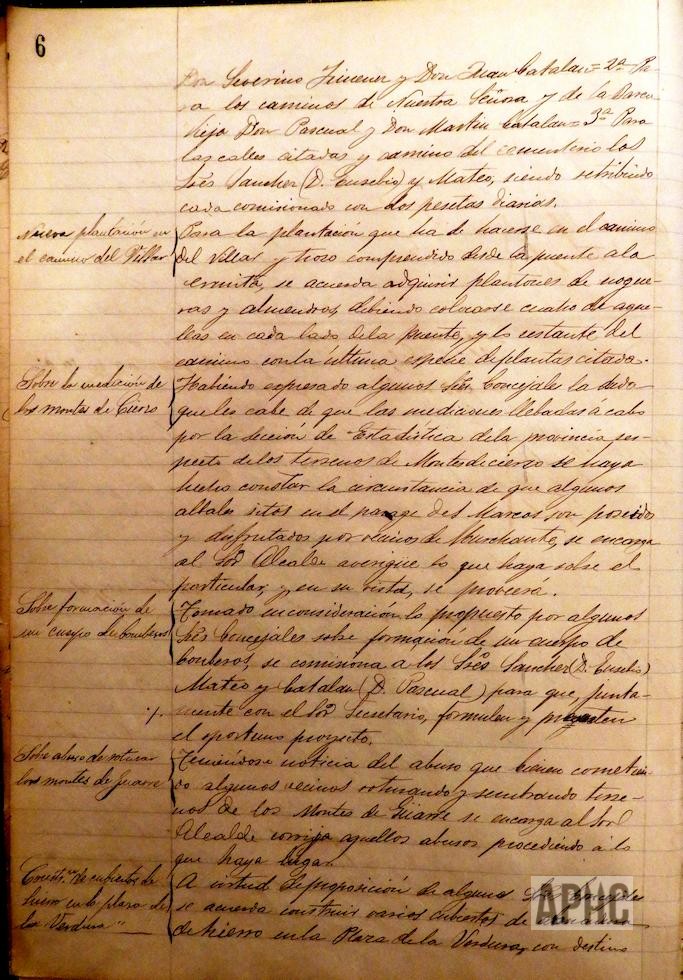 6
Don Severino Jimenez y Don Juan Catalan = 2ª Pa-
ra los caminos de Nuestra Señora y de la Barca
vieja Don Pascual y Don Martin Catalan = 3ª Para
las calles citadas y camino del cementerio los
Sres Sanchez (D. Eusebio) y Mateo, siendo retribuido
cada comisionado con dos pesetas diarias.
Nueva plantación en
el camino del Villar
Para la plantacion que ha de hacerse en el camino
del Villar y trozo comprendido desde la puente a la
ermita, se acuerda adquirir plantones de nogue-
ras y almendros, debiendo colocarse cuatro de aque-
llas en cada lado de la puente, y lo restante del
camino con la última especie de plantas citada.
Sobre la medición de
los montes de Cierzo
Habiendo expresado algunos Sres Concejales la duda
que les cabe de que las mediciones llebadas á cabo
por la Sección de Estadística de la provincia, res-
pecto de los terrenos de Montes de cierzo se haya
hecho constar la circunstancia de que algunos
sitos en el parage del Marcos, son poseidos
y disfrutados por vecinos de Murchante, se encarga
al Sor Alcalde averigüe lo que haya sobre el
particular, y en su vista, se proveerá.
Sobre formación de
un cuerpo de bomberos
Tomado en consideración lo propuesto por algunos
Sres Concejales sobre formación de un cuerpo de
bomberos, se comisiona a los Sres Sanchez (D. Eusebio)
Mateo y Catalan (D. Pascual) para que, junta-
mente con el Sor Secretario, formulen y presenten
el oportuno proyecto.
Sobre abuso de roturar
los montes de
Teniéndose noticia del abuso que vienen cometien-
do algunos vecinos roturando y sembrando terre-
nos de los Montes de se encarga al Sor
Alcalde corrija aquellos abusos procediendo á lo
que haya lugar.
de cubiertos de
hierro en la plaza de
la Verdura
A virtud de proposición de algunos Sres Concejales
se acuerda construir varios cubiertos de
de hierro en la Plaza de la Verdura, con destino
APHC